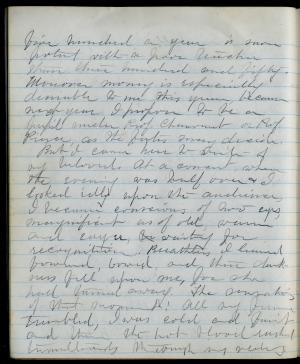 five hundred a year is more
potent with a poor teacher
than three hundred and fifty.
Moreover money is especially
desirable to me this year because
next year I propose to be a
pupil under Prof
Pierce as the
But I came here to write of
my beloved. At a concert when
the evening was half over & I
looked idly upon the audience
I became conscious of two eyes
magnificent as of old warm
and eager, & waiting for
recognition. Breathless I leaned
forward, bowed, and then dark-
ness fell upon me, for she
had turned away. The
of that moment! All my
trembled, I was cold and faint
and then the hot blood rushed
through my veins